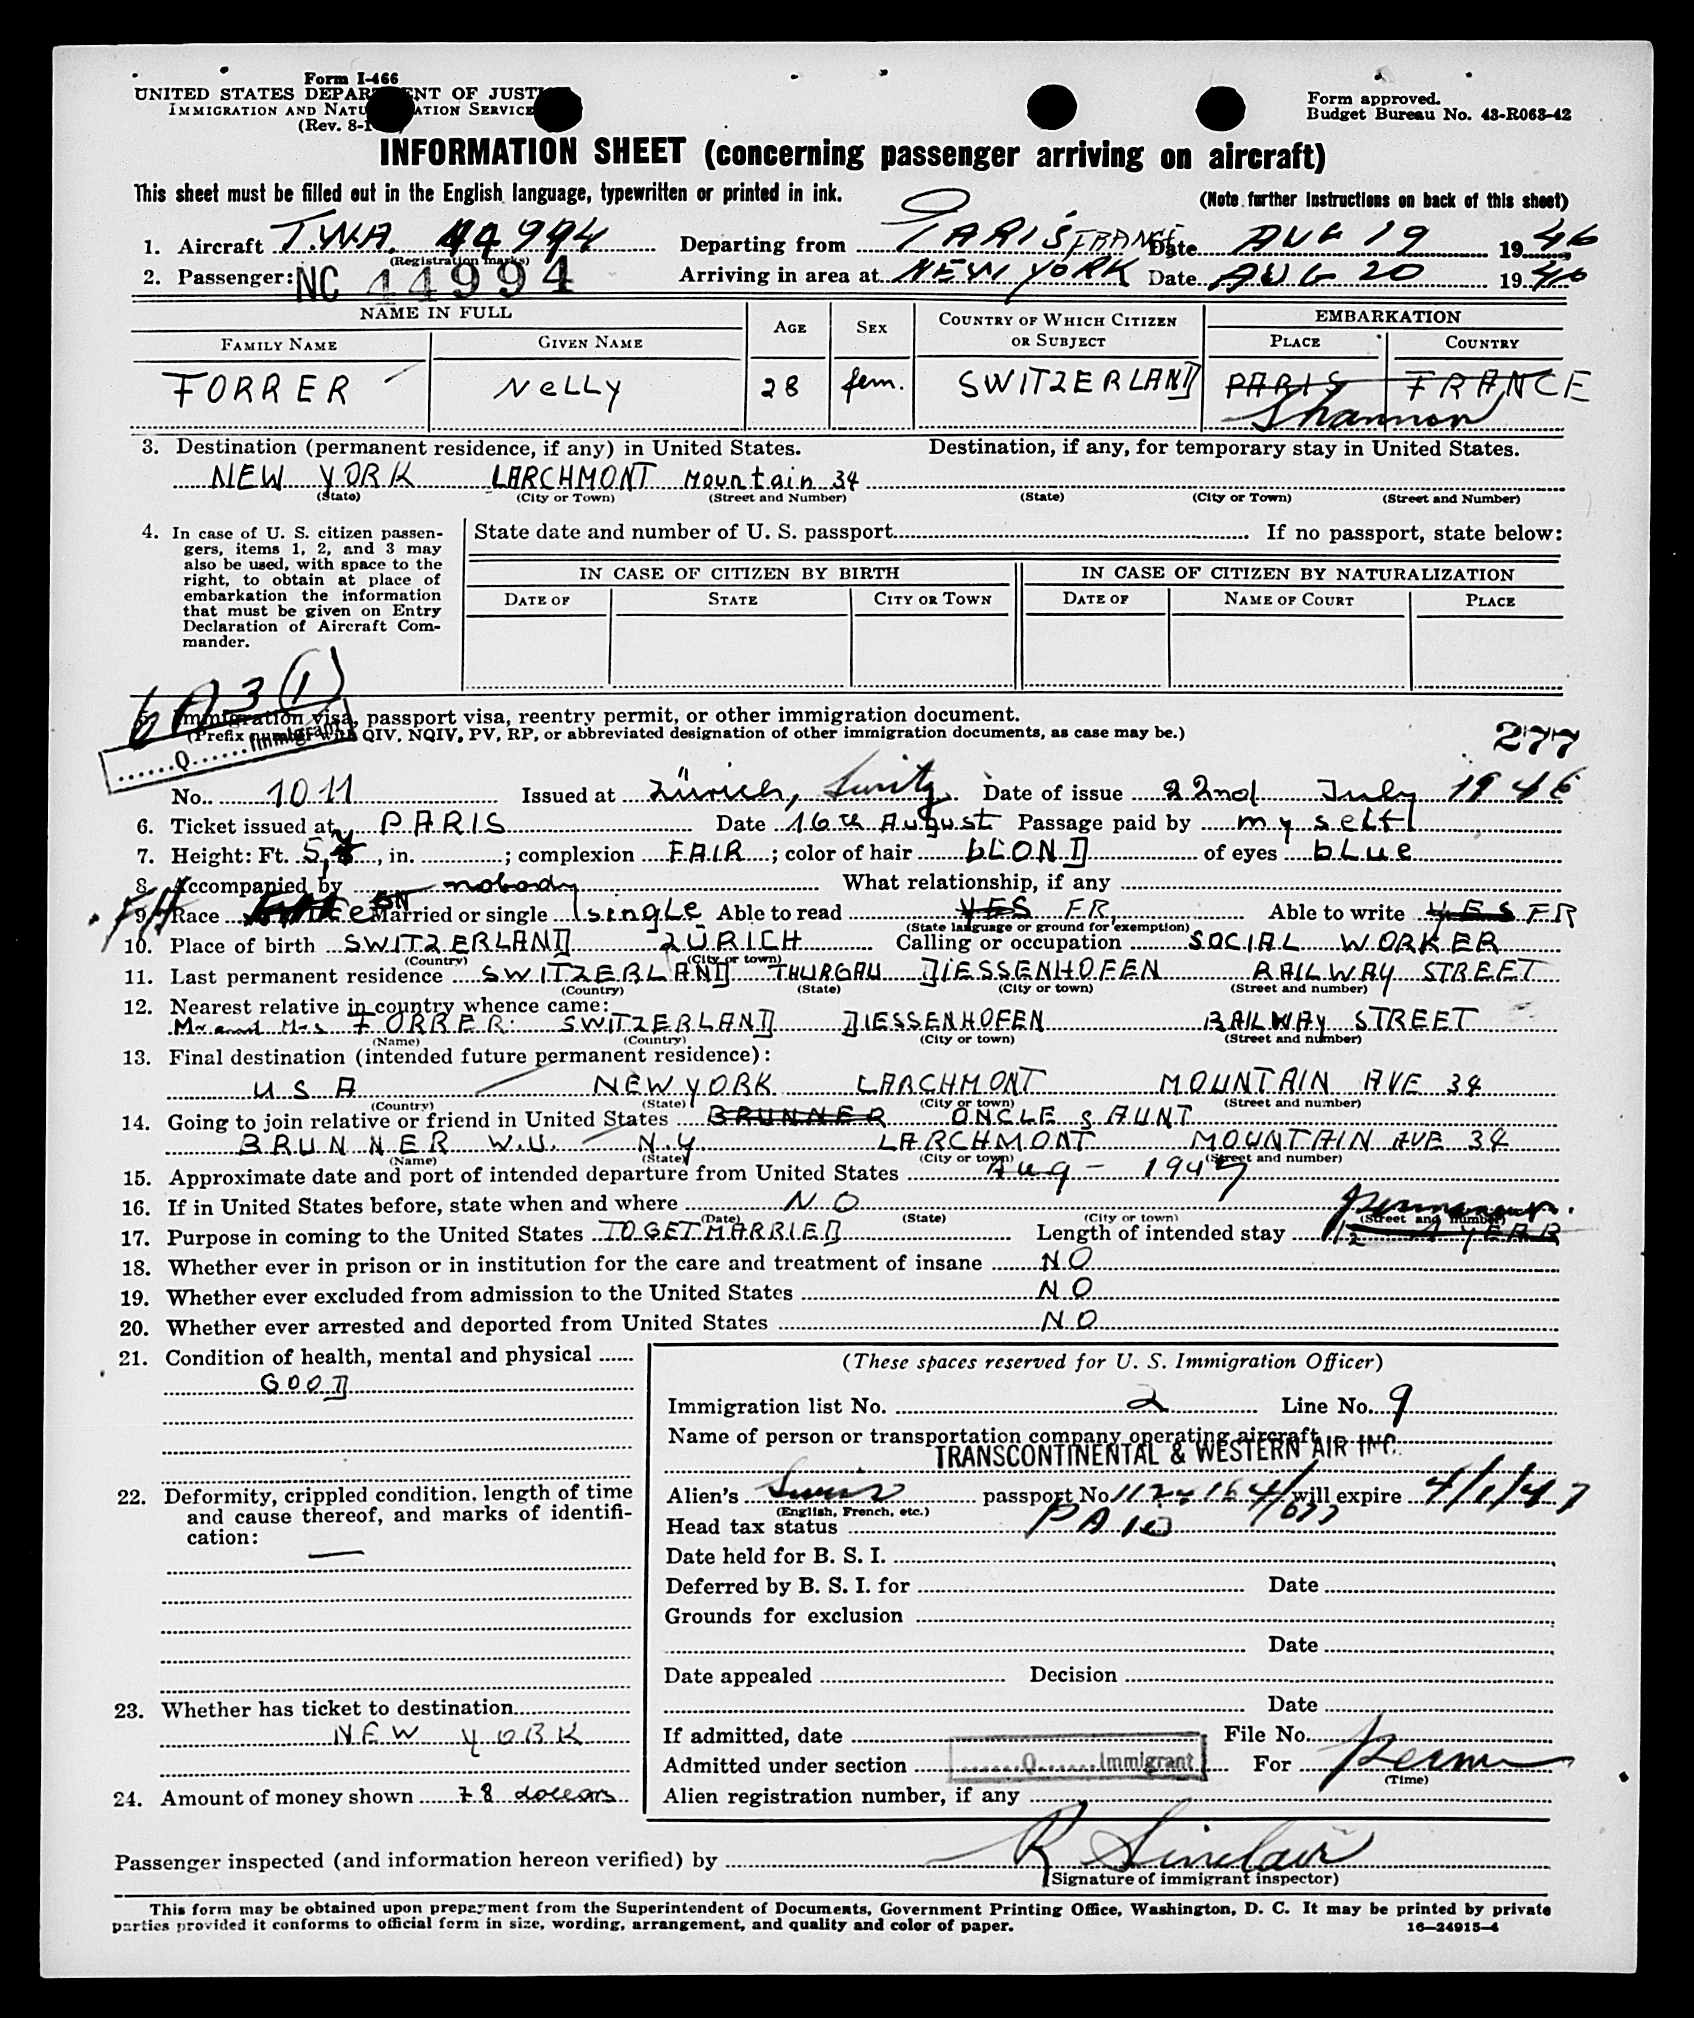 Form I-466
UNITED STATES DEPARTMENT OF JUSTICE
IMMIGRATION AND NATURALIZATION SERVICE
(Rev. 8-1
Form approved.
Budget Bureau No. 43-R063-42
INFORMATION SHEET (concerning passenger arriving on aircraft)
This sheet must be filled out in the English language, typewritten or printed in ink.
(Note further instructions on back of this sheet)
1. Aircraft T.W.A. 44994 Departing from PARIS FRANCE Date AUG 19 1946
(Registration marks)
2. Passenger: NC 44994 Arriving in area at NEW YORK Date AUG 20 1946
NAME IN FULL
AGE SEX COUNTRY OF WHICH CITIZEN OR SUBJECT EMBARKATION
FAMILY NAME GIVEN NAME PLACE COUNTRY
FORRER NELLY 28 fem. SWITZERLAND PARIS FRANCE
Shannon
3. Destination (permanent residence, if any) in United States. Destination, if any, for temporary stay in United States.
NEW YORK LARCHMONT Mountain 34
(State) (City or Town) (Street and Number) (State) (City or Town) (Street and Number)
4. In case of U. S. citizen passengers, items 1, 2, and 3 may also be used, with space to the right, to obtain at place of embarkation the information that must be given on Entry Declaration of Aircraft Commander.
State date and number of U. S. passport If no passport, state below:
IN CASE OF CITIZEN BY BIRTH IN CASE OF CITIZEN BY NATURALIZATION
DATE OF STATE CITY OR TOWN DATE OF NAME OF COURT PLACE
6A3(1)
5. Immigration visa, passport visa, reentry permit, or other immigration document.
(Prefix number with QIV, NQIV, PV, RP, or abbreviated designation of other immigration documents, as case may be.)
Q Immigrant
277
No. 1011 Issued at Zürich, Switz. Date of issue 22nd July 1946
6. Ticket issued at PARIS Date 16th August Passage paid by myself
7. Height: Ft. 5, in. ; complexion FAIR ; color of hair BLOND of eyes blue
8. Accompanied by nobody What relationship, if any
9. Race Married or single single Able to read YES FR, Able to write YES FR
(State language or ground for exemption)
10. Place of birth SWITZERLAND ZÜRICH Calling or occupation SOCIAL WORKER
(Country) (City or town)
11. Last permanent residence SWITZERLAND THURGAU DIESSENHOFEN RAILWAY STREET
(Country) (State) (City or town) (Street and number)
12. Nearest relative in country whence came:
Mr and Mrs FORRER SWITZERLAND DIESSENHOFEN RAILWAY STREET
(Name) (Country) (City or town) (Street and number)
13. Final destination (intended future permanent residence):
USA NEW YORK LARCHMONT MOUNTAIN AVE 34
(Country) (State) (City or town) (Street and number)
14. Going to join relative or friend in United States BRUNNER ONCLE & AUNT
BRUNNER W.U. N.Y LARCHMONT MOUNTAIN AVE 34
(Name) (State) (City or town) (Street and number)
15. Approximate date and port of intended departure from United States Aug - 1947
16. If in United States before, state when and where NO
(Date) (State) (City or town) (Street and number)
17. Purpose in coming to the United States TO GET MARRIED Length of intended stay permanent. 1/2 - 1 YEAR
18. Whether ever in prison or in institution for the care and treatment of insane NO
19. Whether ever excluded from admission to the United States NO
20. Whether ever arrested and deported from United States NO
21. Condition of health, mental and physical
GOOD
22. Deformity, crippled condition, length of time and cause thereof, and marks of identification:
—
23. Whether has ticket to destination
NEW YORK
24. Amount of money shown 78 dollars
(These spaces reserved for U. S. Immigration Officer)
Immigration list No. 2 Line No. 9
Name of person or transportation company operating aircraft
TRANSCONTINENTAL & WESTERN AIR INC.
Alien's Swiss passport No will expire 4/1/47
(English, French, etc.)
Head tax status PAID
Date held for B. S. I.
Deferred by B. S. I. for Date
Grounds for exclusion
Date
Date appealed Decision
Date
If admitted, date File No.
Admitted under section Q Immigrant For Perm
(Time)
Alien registration number, if any
Passenger inspected (and information hereon verified) by R Sinclair
(Signature of immigrant inspector)
This form may be obtained upon prepayment from the Superintendent of Documents, Government Printing Office, Washington, D. C. It may be printed by private
parties provided it conforms to official form in size, wording, arrangement, and quality and color of paper.
16—24915-4